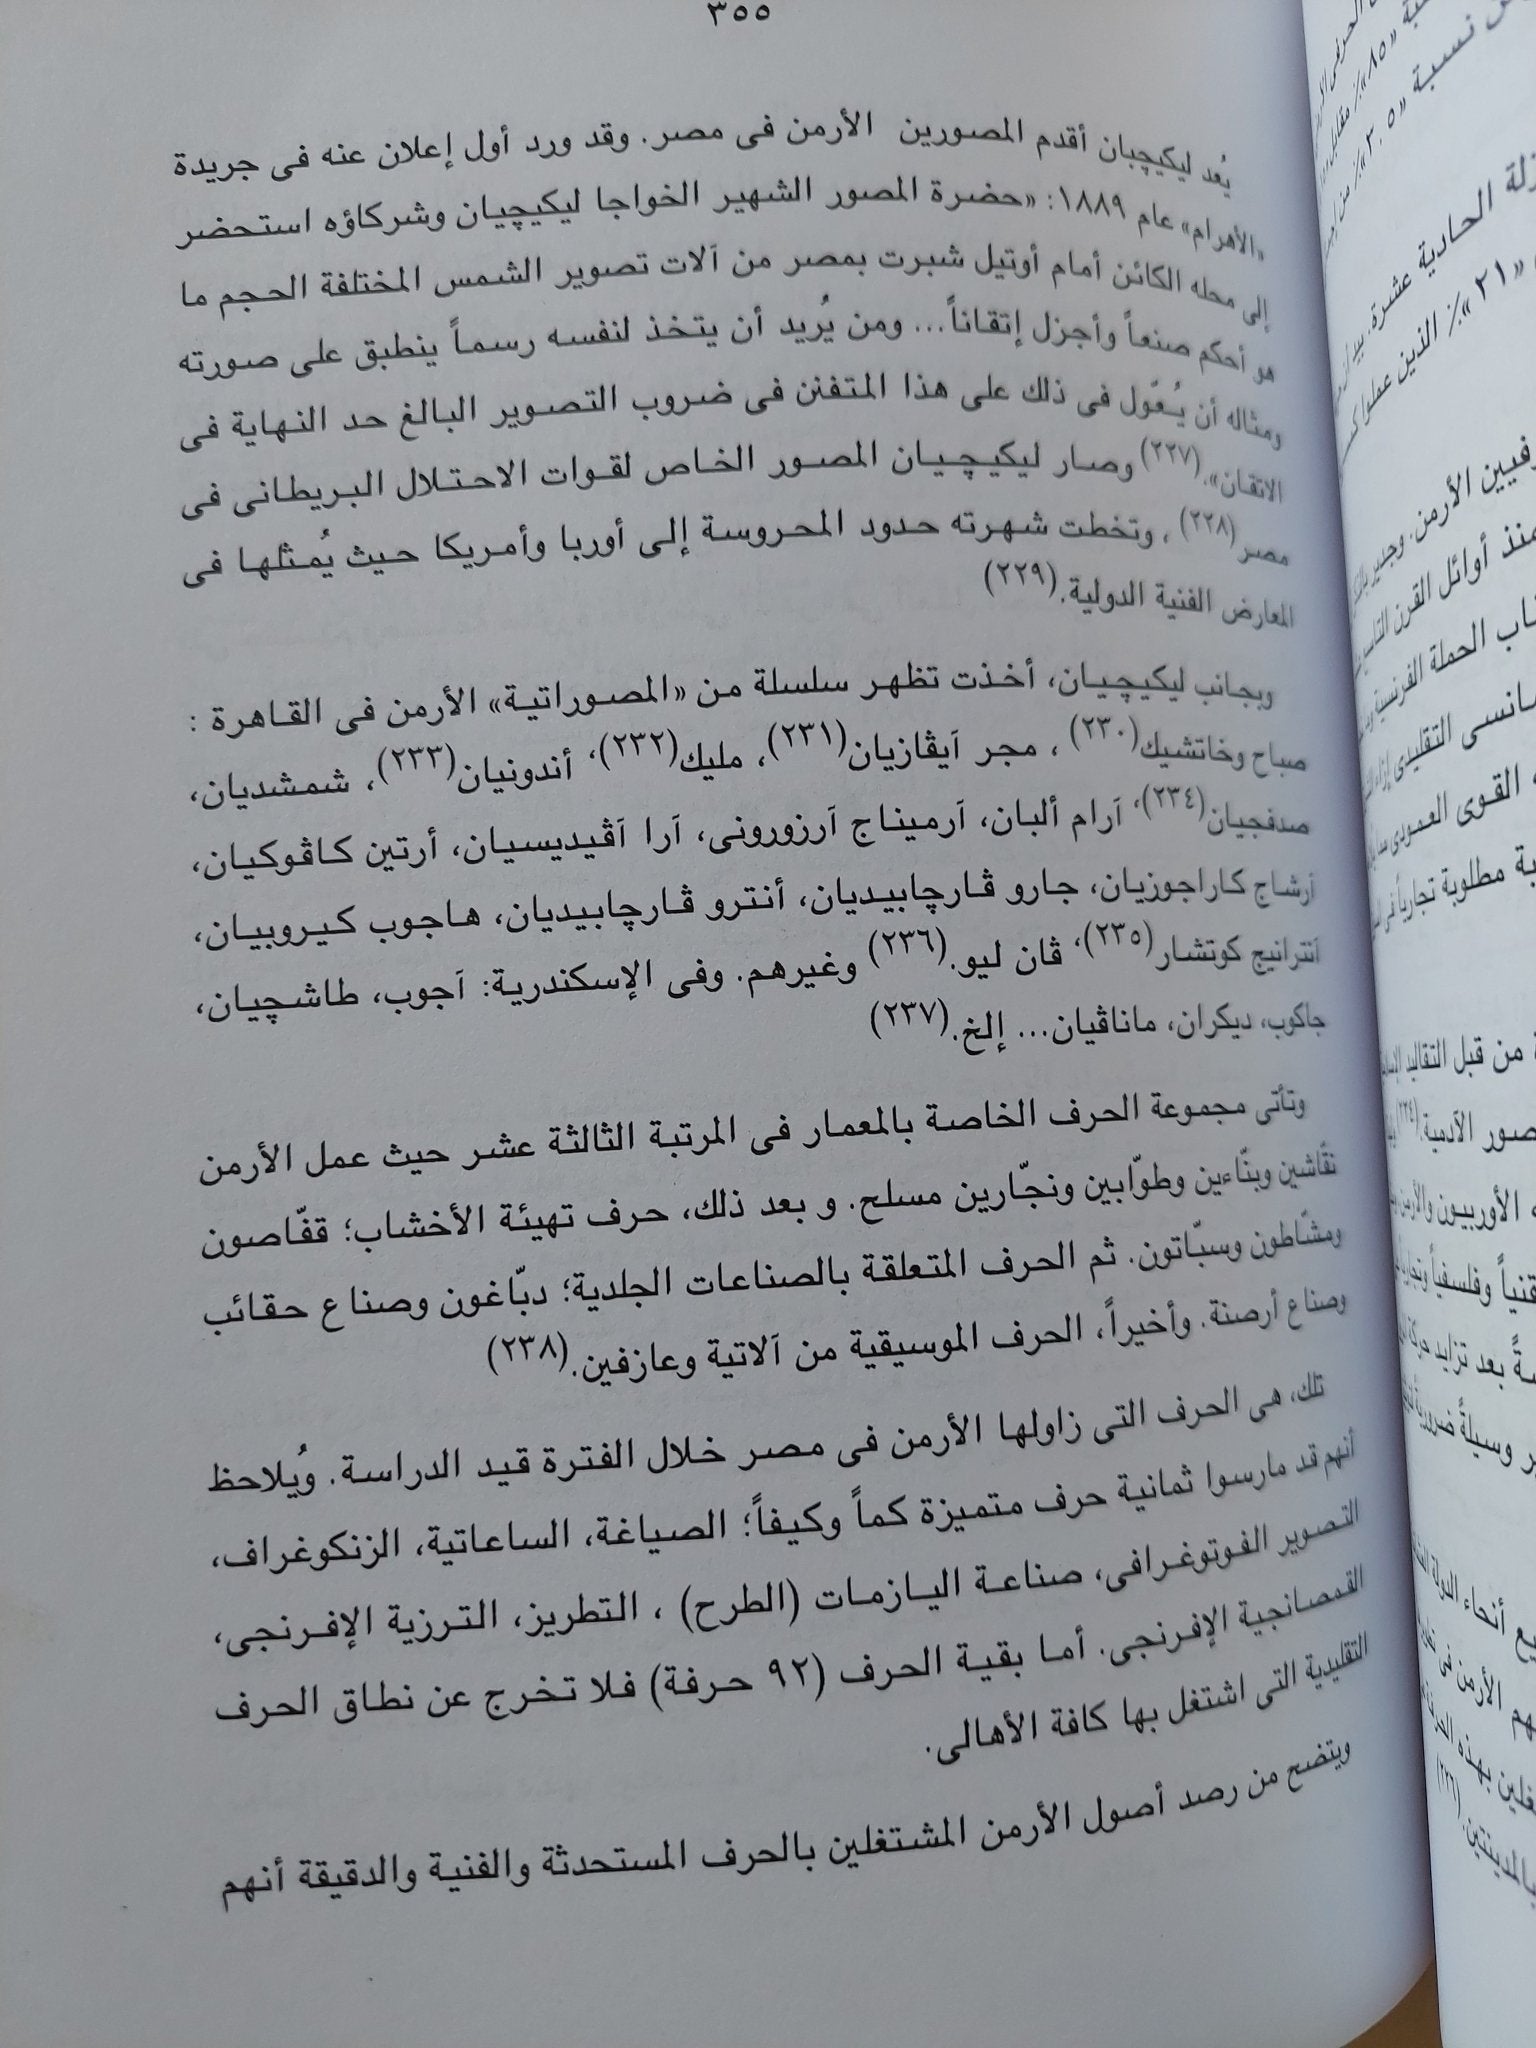 ٣٥٥
يُعد ليكيچيان أقدم المصورين الأرمن فى مصر. وقد ورد أول إعلان عنه فى جريدة
«الأهرام» عام ١٨٨٩: «حضرة المصور الشهير الخواجا ليكيچيان وشركاؤه استحضر
إلى محله الكائن أمام أوتيل شبرت بمصر من آلات تصوير الشمس المختلفة الحجم ما
هو أحكم صنعاً وأجزل إتقاناً... ومن يُريد أن يتخذ لنفسه رسماً ينطبق على صورته
ومثاله أن يُعّول فى ذلك على هذا المتفنن فى ضروب التصوير البالغ حد النهاية فى
الاتقان».(٢٢٧) وصار ليكيچيان المصور الخاص لقوات الاحتلال البريطانى فى
مصر(٢٢٨) ، وتخطت شهرته حدود المحروسة إلى أوربا وأمريكا حيث يُمثلها فى
المعارض الفنية الدولية.(٢٢٩)
وبجانب ليكيچيان، أخذت تظهر سلسلة من «المصوراتية» الأرمن فى القاهرة :
صباح وخاتشيك(٢٣٠) ، مجر آيڤازيان(٢٣١)، مليك(٢٣٢)، أندونيان(٢٣٣)، شمشديان،
صدفجيان(٢٣٤)، آرام ألبان، آرميناج آرزورونى، آرا آڤيديسيان، أرتين كاڤوكيان،
أرشاج كاراجوزيان، جارو ڤارچابيديان، أنترو ڤارچابيديان، هاجوب كيروبيان،
آنترانيج كوتشار(٢٣٥)، ڤان ليو.(٢٣٦) وغيرهم. وفى الإسكندرية: آجوب، طاشچيان،
جاكوب، ديكران، ماناڤيان... إلخ.(٢٣٧)
وتأتى مجموعة الحرف الخاصة بالمعمار فى المرتبة الثالثة عشر حيث عمل الأرمن
نقّاشين وبنّاءين وطوّابين ونجّارين مسلح. و بعد ذلك، حرف تهيئة الأخشاب؛ قفّاصون
ومشّاطون وسبّاتون. ثم الحرف المتعلقة بالصناعات الجلدية؛ دبّاغون وصناع حقائب
وصناع أرصنة. وأخيراً، الحرف الموسيقية من آلاتية وعازفين.(٢٣٨)
تلك، هى الحرف التى زاولها الأرمن فى مصر خلال الفترة قيد الدراسة. ويُلاحظ
أنهم قد مارسوا ثمانية حرف متميزة كماً وكيفاً؛ الصياغة، الساعاتية، الزنكوغراف،
التصوير الفوتوغرافى، صناعة اليازمات (الطرح) ، التطريز، الترزية الإفرنجى،
القمصانجية الإفرنجى. أما بقية الحرف (٩٢ حرفة) فلا تخرج عن نطاق الحرف
التقليدية التى اشتغل بها كافة الأهالى.
ويتضح من رصد أصول الأرمن المشتغلين بالحرف المستحدثة والفنية والدقيقة أنهم
نسبة «٢.٥٪
زلة الحادية عشرة.
«٢١»٪ الذين عملوا
رفيين الأرمن. وجدير
منذ أوائل القرن
الحملة الفرنسية
التقليدى
القوى العمودى
مطلوبة تجارياً فى
من قبل التقاليد
صور الآدمية.(٢٢٤)
الأوربيون والأرمن
وفلسفياً
بعد تزايد حركة
وسيلةً ضرورية
أنحاء الدولة
الأرمن فى
بهذه
بالمدينتين.(٢٢٦)